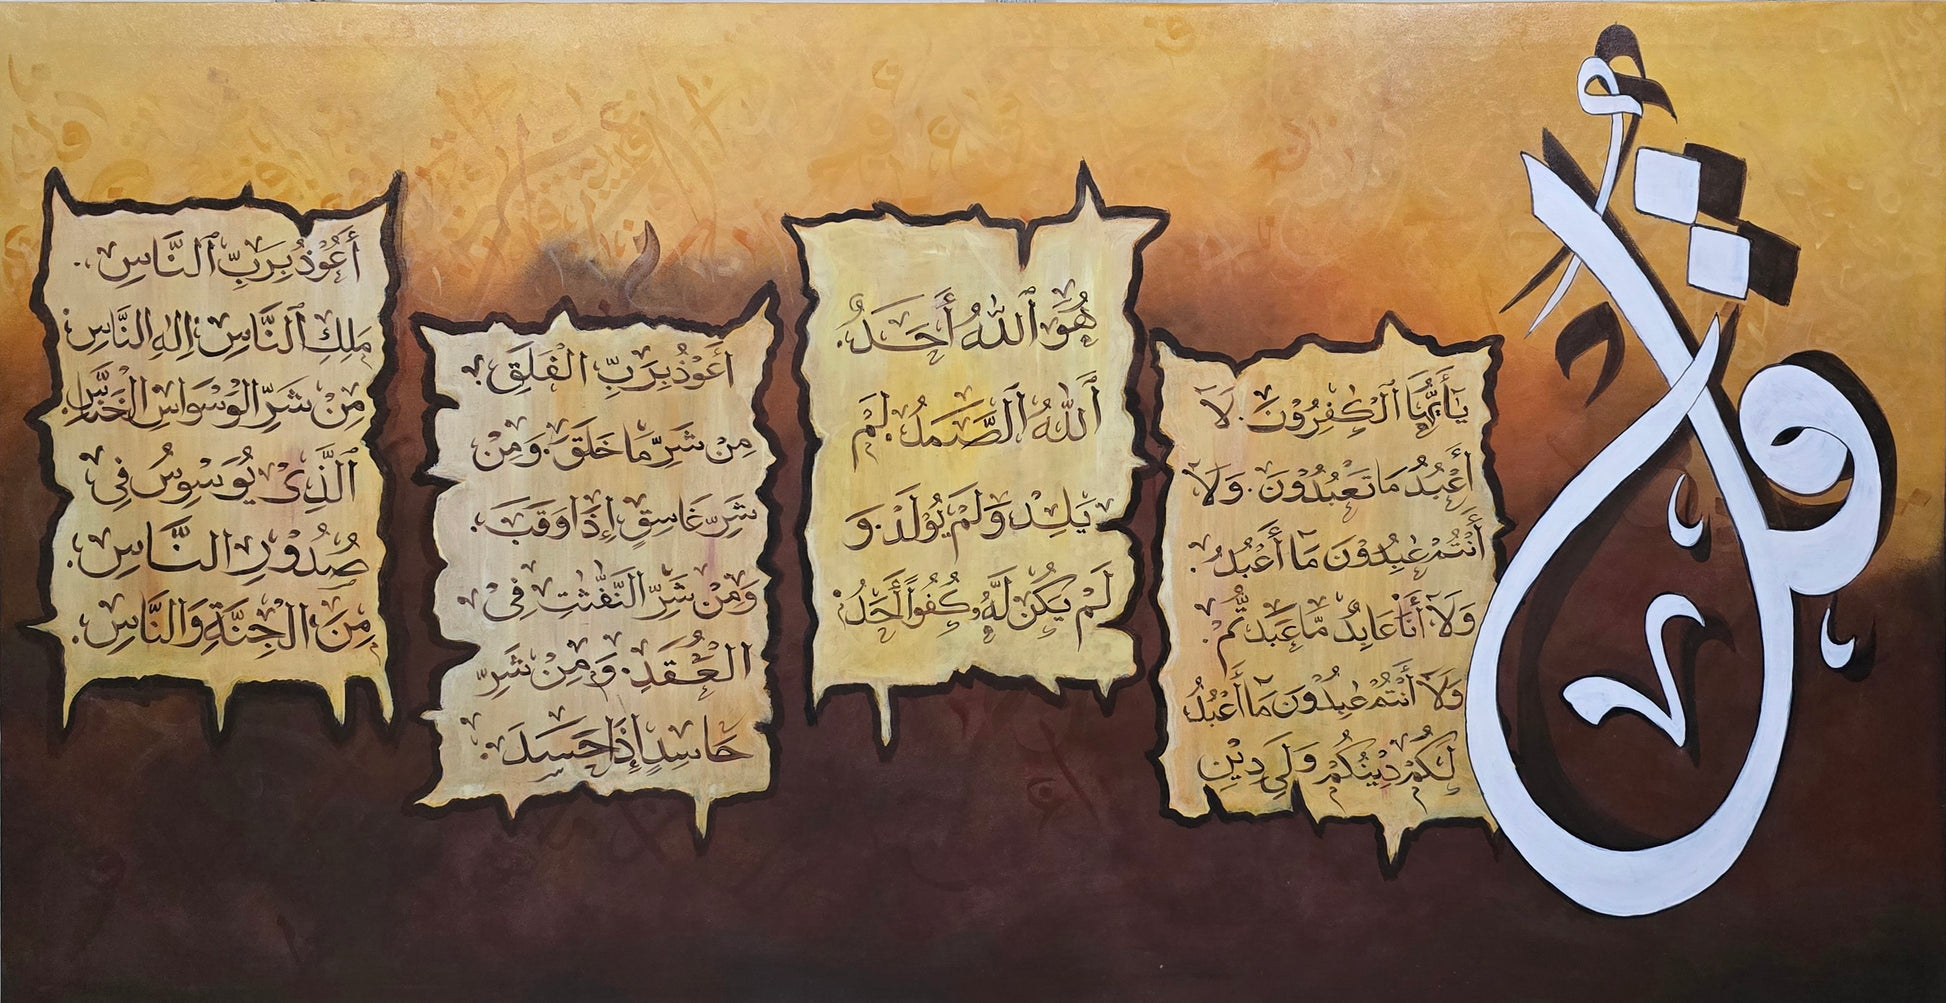 قُلْ
يَٰٓأَيُّهَا ٱلْكَٰفِرُوْنَ. لَآ
أَعْبُدُ مَا تَعْبُدُوْنَ. وَلَآ
أَنْتُمْ عٰبِدُوْنَ مَآ أَعْبُدُ.
وَلَآ أَنَا۠ عَابِدٌ مَّا عَبَدتُّمْ.
وَلَآ أَنْتُمْ عٰبِدُوْنَ مَآ أَعْبُدُ
لَكُمْ دِيْنُكُمْ وَلِيَ دِيْنِ
هُوَ ٱللّٰهُ أَحَدٌ.
ٱَللّٰهُ الصَّمَدُ. لَمْ
يَلِدْ وَلَمْ يُوْلَدْ. وَ
لَمْ يَكُنْ لَّهُۥ كُفُوًا أَحَدٌ.
أَعُوْذُ بِرَبِّ الْفَلَقِ.
مِنْ شَرِّ مَا خَلَقَ. وَمِنْ
شَرِّ غَاسِقٍ إِذَا وَقَبَ.
وَمِنْ شَرِّ النَّفّٰثٰتِ فِى
الْعُقَدِ. وَمِنْ شَرِّ
حَاسِدٍ إِذَا حَسَدَ.
أَعُوْذُ بِرَبِّ ٱلنَّاسِ..
مَلِكِ ٱلنَّاسِ. اِلٰهِ النَّاسِ.
مِنْ شَرِّ الْوَسْوَاسِ الْخَنَّاسِ.
ٱلَّذِىْ يُوَسْوِسُ فِى
صُدُوْرِ النَّاسِ.
مِنَ الْجِنَّةِ وَالنَّاسِ.